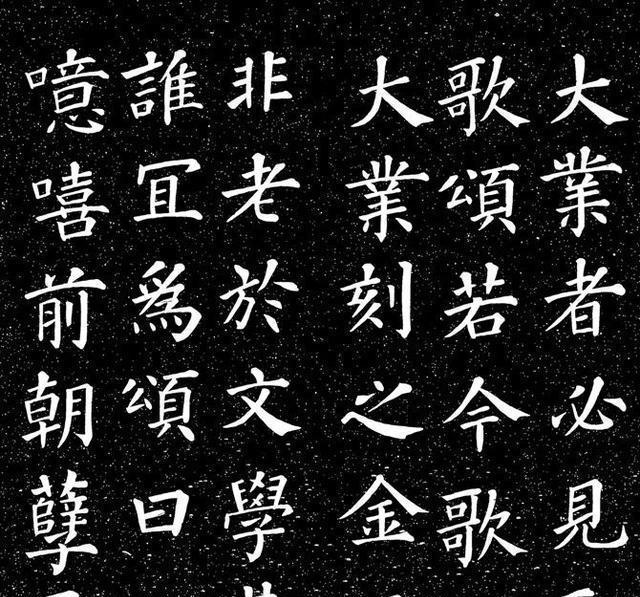 大業者必見
歌頌若今歌
大業刻之金
非老於文學
誰冝爲頌曰
噫嘻前朝孽